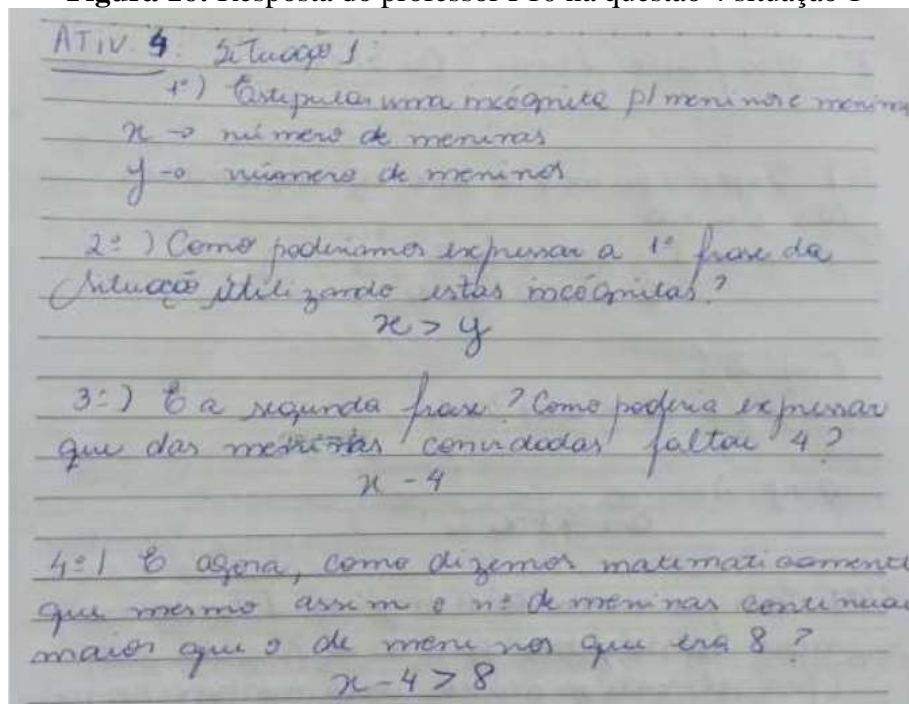 Figura 10: Resposta do professor P10 na questão 4 situação 1
ATIV. 4: Situação 1:
1º) Estipular uma incógnita p/ meninos e menina
x → número de meninas
y → número de meninos
2º) Como poderíamos expressar a 1ª frase da
situação utilizando estas incógnitas?
x > y
3º) E a segunda frase? Como poderia expressar
que das meninas convidadas faltou 4?
x - 4
4º) E agora, como dizemos matematicamente
que mesmo assim o nº de meninas continua
maior que o de meninos que era 8?
x - 4 > 8